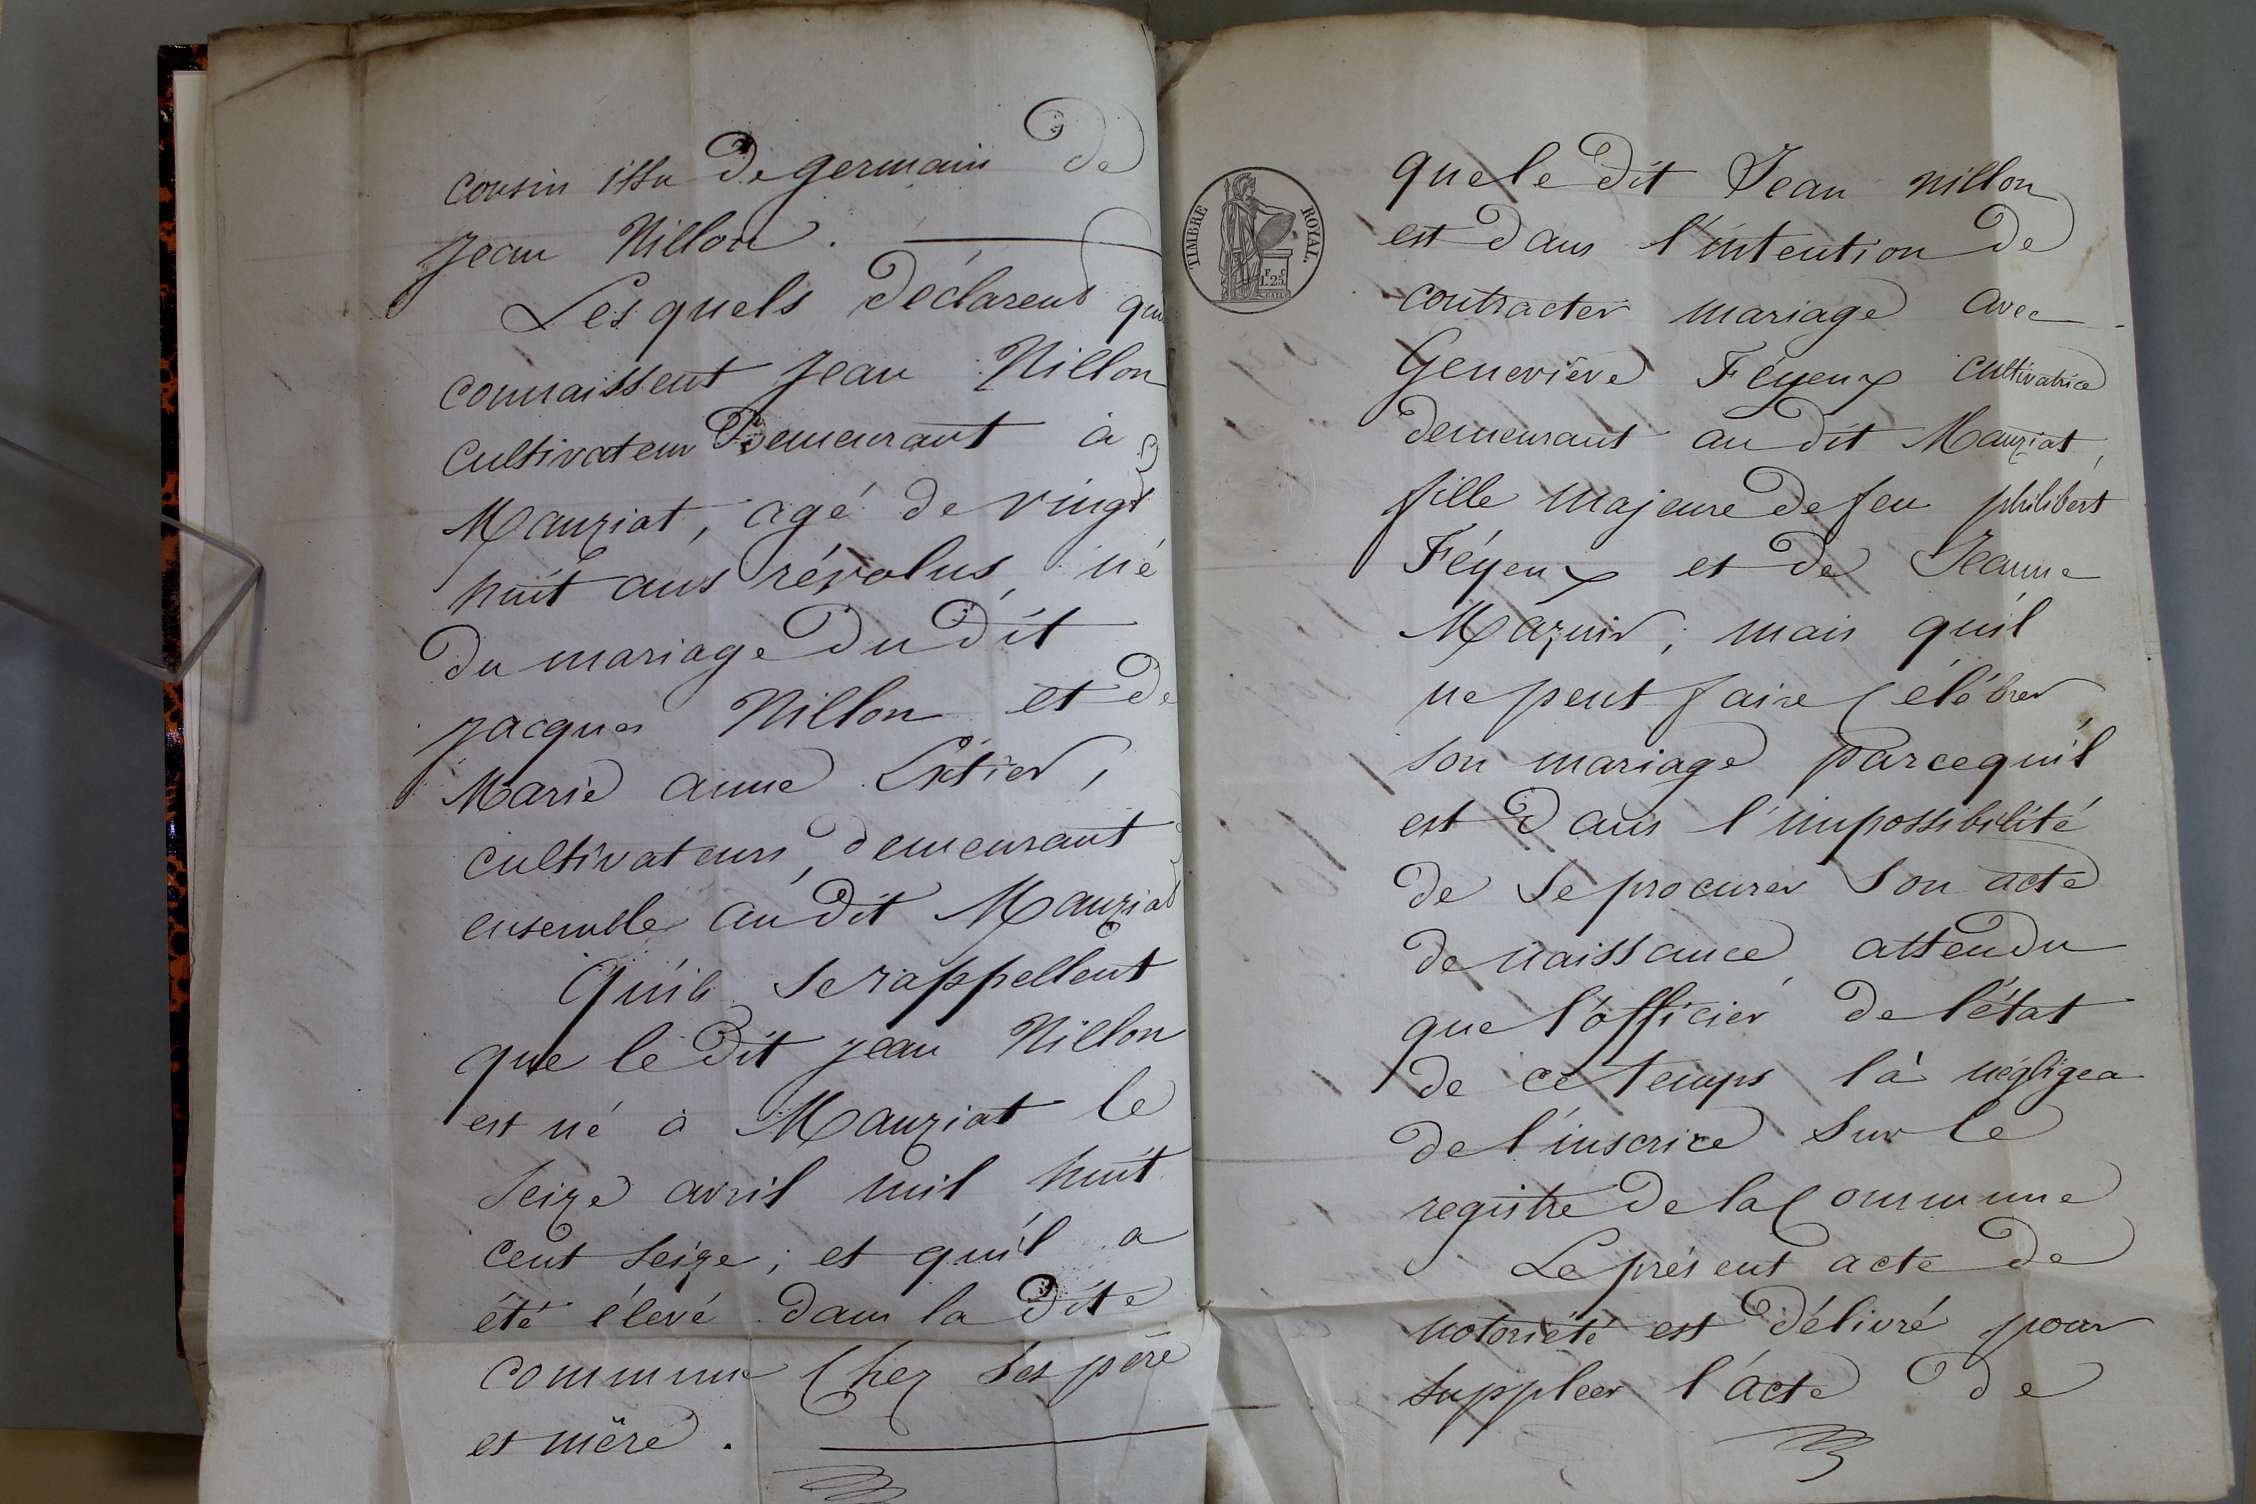 cousin issu de germain de
Jean Nillon.
Les quels déclarent qu
connaissent Jean Nillon
cultivateur demeurant à
Manziat, agé de vingt
huit ans révolus, né
du mariage du dit
Jacques Nillon et de
Marie anne
cultivateurs, demeurant
ensemble au dit Manziat
Qu'ils se rappellent
que le dit Jean Nillon
est né à Manziat le
seize avril mil huit
cent seize ; et qu'il a
été élevé dans la dite
commune chez ses père
et mère.
TIMBRE ROYAL.
1F. 25C
que le dit Jean Nillon
est dans l'intention de
contracter mariage avec
Geneviève Féyeux cultivatrice
demeurant au dit Manziat,
fille majeure de feu philibert
Féyeux et de Jeanne
Mazuir ; mais qu'il
ne peut faire célébrer
son mariage parcequ'il
est dans l'impossibilité
de se procurer son acte
de naissance, attendu
que l'officier de l'état
de ce temps là négligea
de l'inscrire sur le
registre de la Commune
Le présent acte de
notoriété est délivré pour
suppléer l'acte de